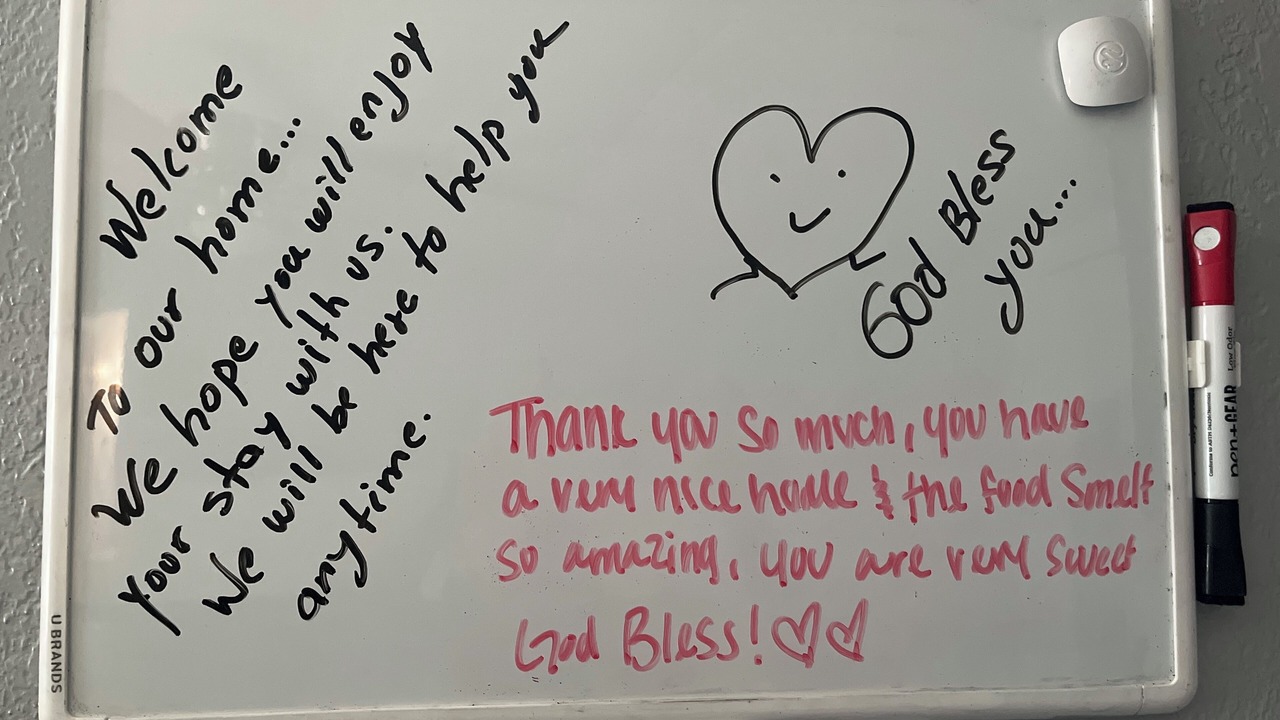 Welcome
To our home...
We hope you will enjoy
your stay with us.
We will be here to help you
anytime.
God Bless
you...
Thank you so much, you have
a very nice home & the food smelt
so amazing, you are very sweet
God Bless!
U BRANDS
pen+GEAR
Low Odor